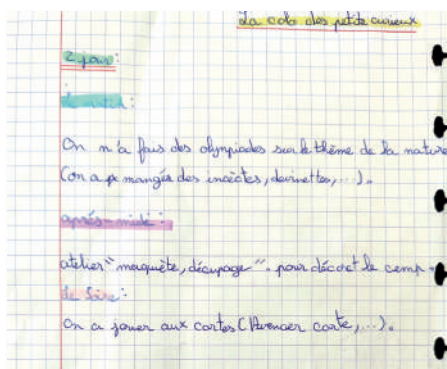 La colo des petits curieux
2 jour :
Le matin :
On n'a fais des olympiades sur le thème de la nature
(on a pu mangés des insèctes, devinettes, ...).
après-midi :
atelier "maquète, découpage" pour décoret le camp.
Le Soire :
On a jouer aux cartes ( carte, ...).